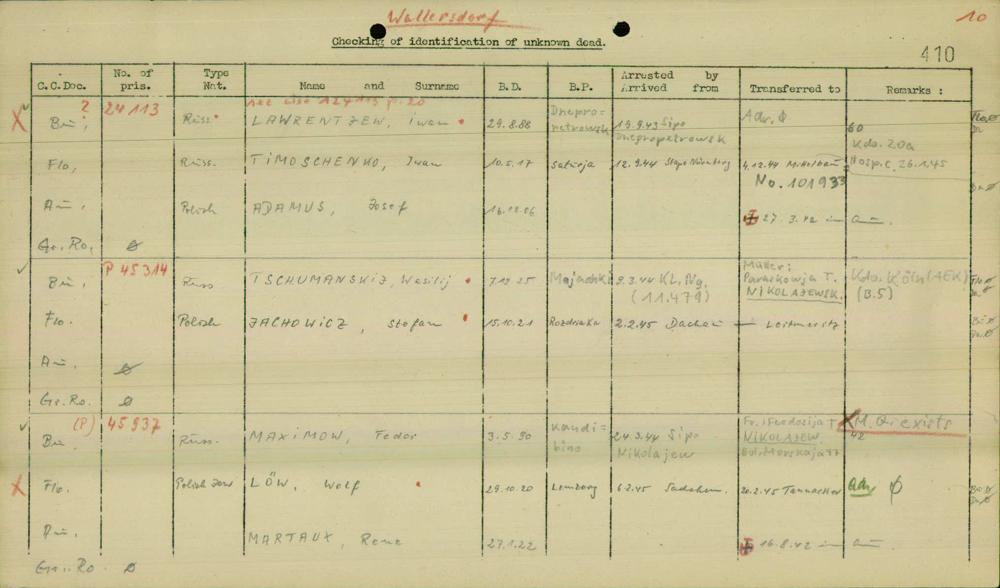 Wallersdorf
10
Checking of identification of unknown dead.
410
C.C.Doc. No. of pris. Type Nat. Name and Surname B.D. B.P. Arrested by Arrived from Transferred to Remarks :
? 24113 see also 124113 p. 20
Bu, Russ. LAWRENTJEW, Iwan 29.8.86 Dnepro=petrowsk 19.9.43 Sipo Dnepropetrowsk Adr. Ø 60
Kdo. 20a
Flo, Russ. TIMOSCHENKO, Iwan 10.5.17 12.9.44 Stapo Nürnberg 4.12.44 Mittelbau Hosp. 26.1.45
No. 101933
Au. Polish ADAMUS, Josef 16.12.06 27.3.42 in Au.
Gr. Ro. Ø
P 45314
Bu, Russ TSCHUMANSKIJ, Wasilij 7.12.25 Majachki 9.3.44 KL. Ng. (11.479) Mutter: Paraskowja T. NIKOLAJEWSK. Kdo. Köln (AEK) (B.5)
Flo. Polish JACHOWICZ, Stefan 15.10.21 2.2.45 Dachau — Leitmeritz
Au. Ø
Gr. Ro. Ø
(P) 45937
Bu Russ. MAXIMOW, Fedor 3.5.90 Kandi=bino 24.3.44 Sipo Nikolajew Fr.: Feodosija T. NIKOLAJEW. M. Qi exists
42
Flo. Polish Jew LÖW, Wolf 29.10.20 Lemberg 6.2.45 20.2.45 Adr Ø
Au. MARTAUX, Rene 27.1.22 16.8.42 in Au.
Gr. Ro. Ø